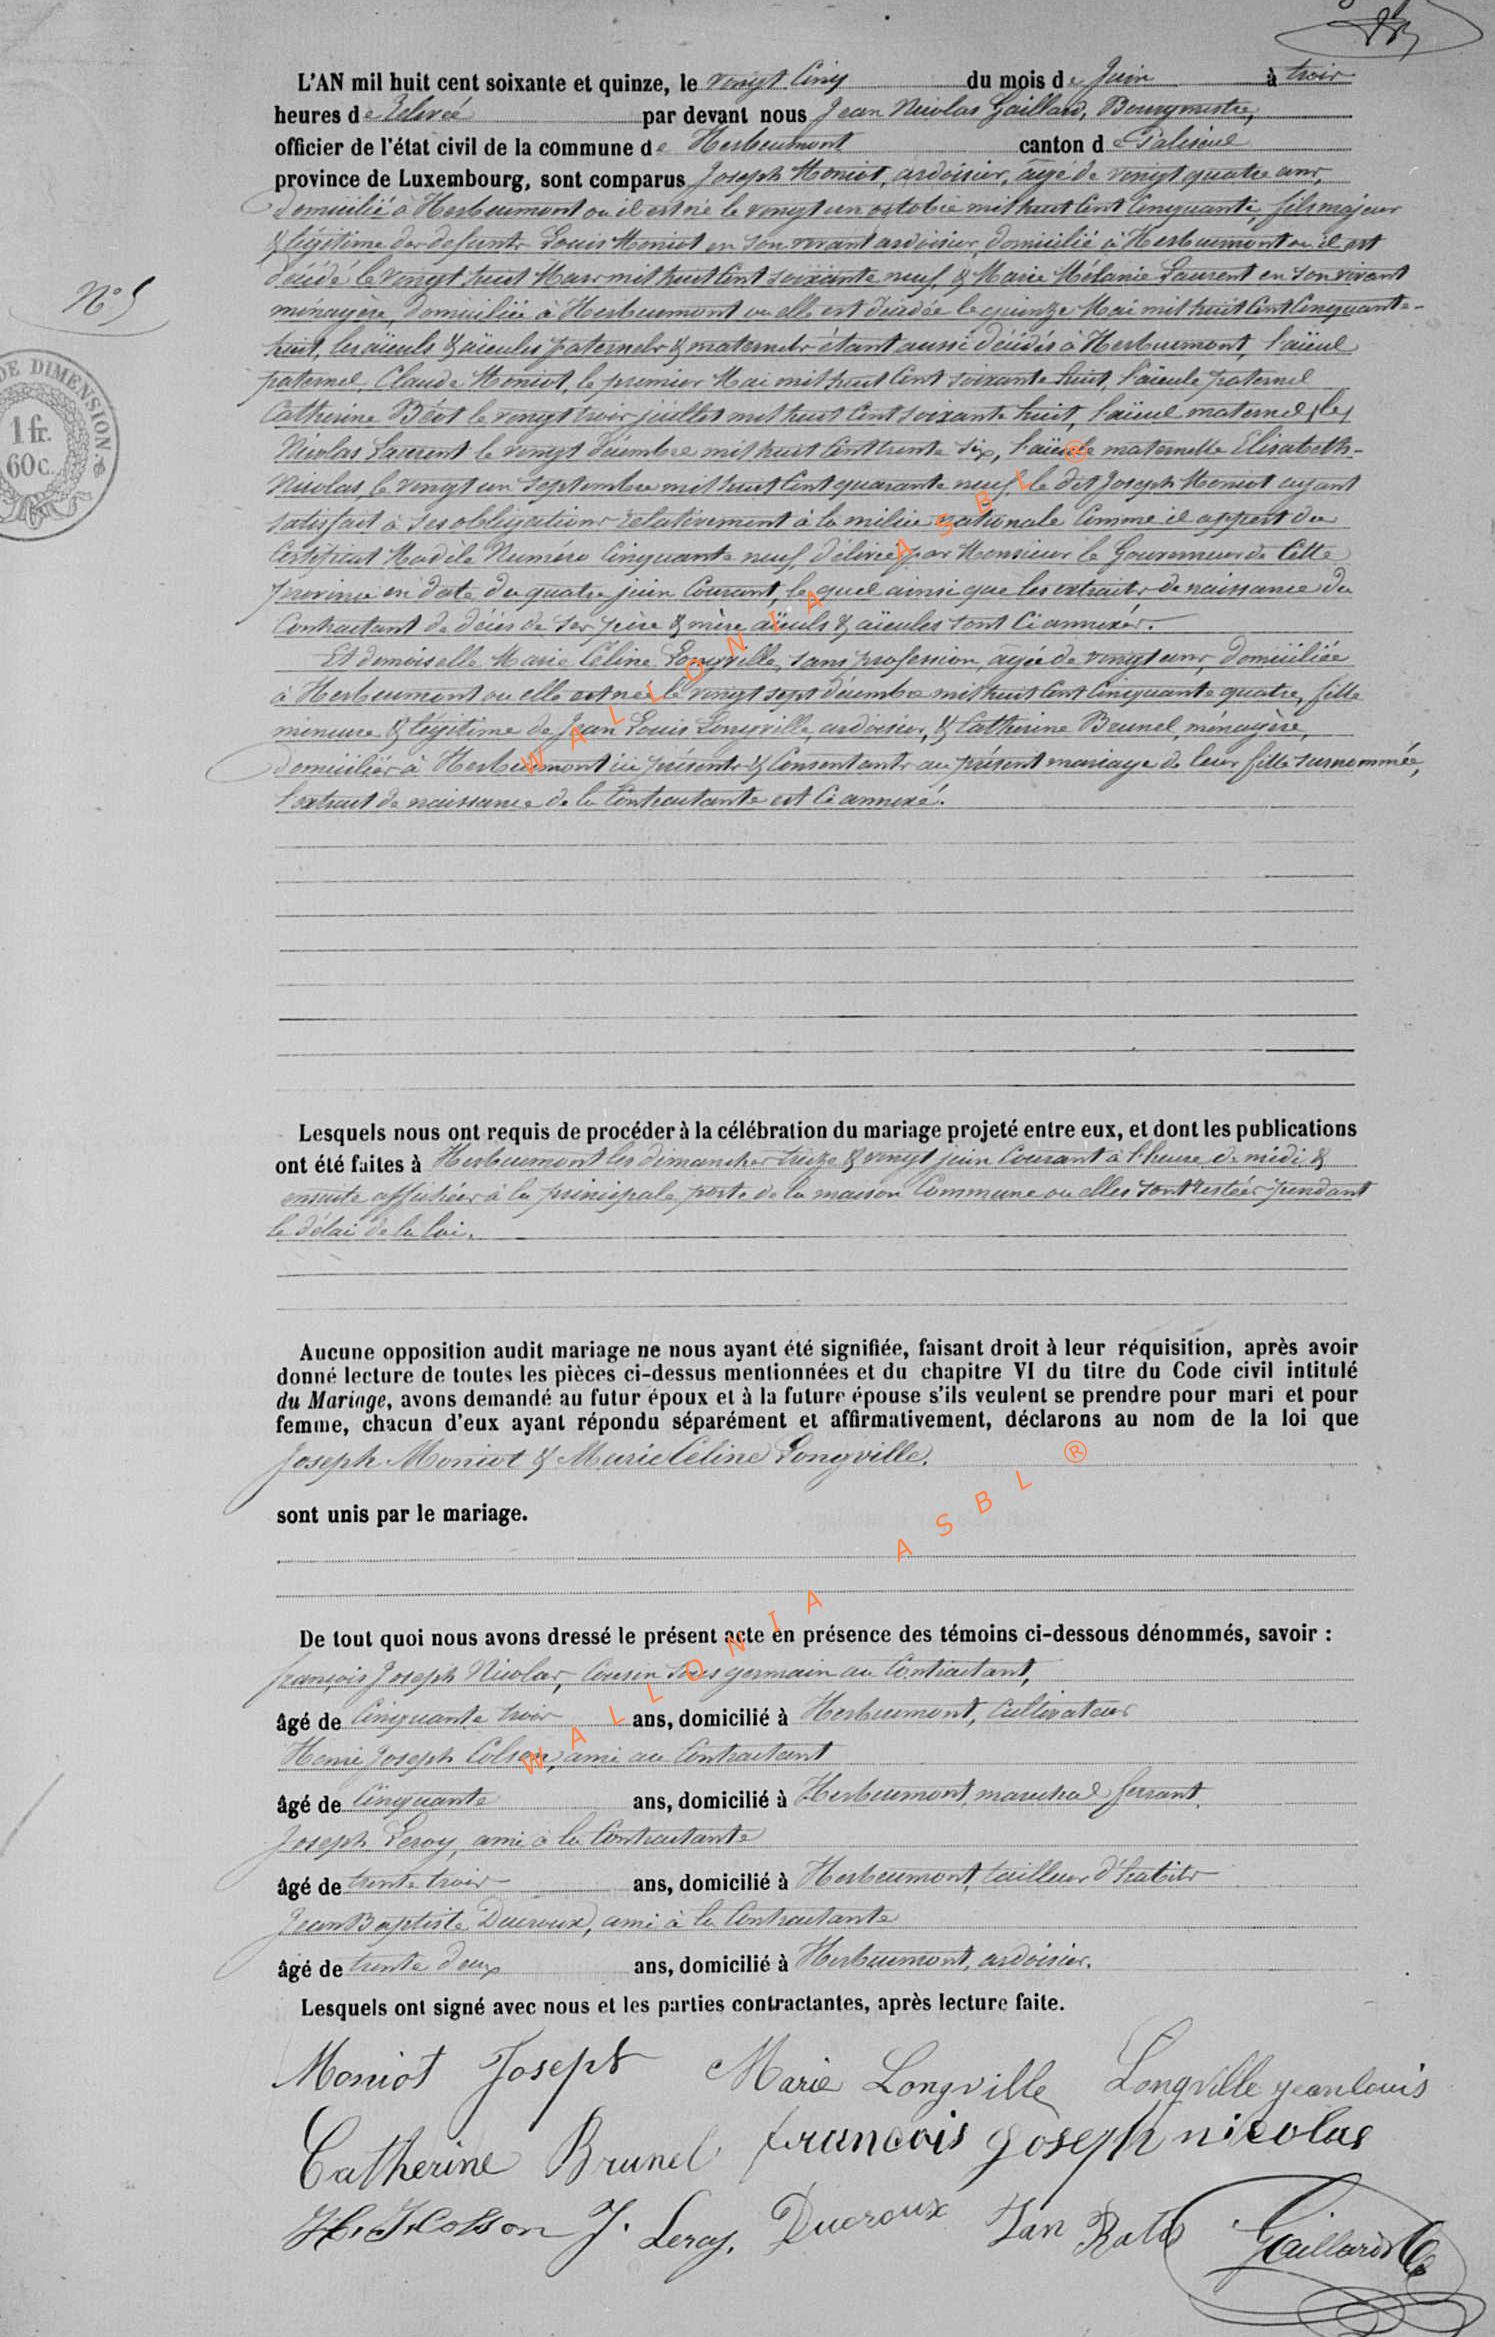 L'AN mil huit cent soixante et quinze, le vingt Cinq du mois de Juin à trois
heures de relevée par devant nous Jean Nicolas Gaillard, Bourgmestre,
officier de l'état civil de la commune de Herbeumont canton de Paliseul
province de Luxembourg, sont comparus Joseph Moniot, ardoisier, âgé de vingt quatre ans,
domicilié à Herbeumont ou il est né le vingt un octobre mil huit Cent Cinquante, fils majeur
& légitime des defunts Louis Moniot en son vivant ardoisier, domicilié à Herbeumont ou il est
décédé le vingt huit Mars mil huit Cent soixante neuf, & Marie Mélanie Laurent en son vivant
ménagère, domiciliée à Herbeumont ou elle est décédée le quinze Mai mil huit Cent Cinquante-
huit, les aïeuls & aïeules paternels & maternels étant aussi décédés à Herbeumont, l'aïeul
paternel Claude Moniot, le premier Mai mil huit Cent soixante huit, l'aïeule paternel
Catherine Béot le vingt trois juillet mil huit Cent soixante huit, l'aïeul maternel
Nicolas Laurent le vingt décembre mil huit Cent trente six, l'aïeule maternelle Elisabeth-
Nicolas, le vingt un septembre mil huit Cent quarante neuf, le dit Joseph Moniot ayant
satisfait à ses obligations relativement à la milice nationale Comme il appert du
Certificat Modèle Numéro Cinquante neuf, délivré par Monsieur le Gouverneur de Cette
province en date du quatre juin Courant, lequel ainsi que les extraits de naissance du
Contractant de décès de ses père & mère aïeuls & aïeules sont Ci annexés.
Et demoiselle Marie Céline Longville, sans profession, âgée de vingt ans, domiciliée
à Herbeumont ou elle est née le vingt sept décembre mil huit Cent Cinquante quatre, fille
mineure & légitime de Jean Louis Longville, ardoisier, & Catherine Brunel, ménagère,
domiciliés à Herbeumont ici présents & Consentants au présent mariage de leur fille surnommée,
l'extrait de naissance de la Contractante est Ci annexé.
N° 5
DE DIMENSION.
1 fr.
60 c.
Lesquels nous ont requis de procéder à la célébration du mariage projeté entre eux, et dont les publications
ont été faites à Herbeumont les dimanches treize & vingt juin Courant à l'heure de midi &
ensuite affichées à la principale porte de la maison Commune ou elles sont restées pendant
le délai de la loi.
Aucune opposition audit mariage ne nous ayant été signifiée, faisant droit à leur réquisition, après avoir
donné lecture de toutes les pièces ci-dessus mentionnées et du chapitre VI du titre du Code civil intitulé
du Mariage, avons demandé au futur époux et à la future épouse s'ils veulent se prendre pour mari et pour
femme, chacun d'eux ayant répondu séparément et affirmativement, déclarons au nom de la loi que
Joseph Moniot & Marie Céline Longville.
sont unis par le mariage.
De tout quoi nous avons dressé le présent acte en présence des témoins ci-dessous dénommés, savoir :
françois Joseph Nicolas, Cousin sous germain au Contractant,
âgé de Cinquante trois ans, domicilié à Herbeumont, Cultivateur
Henri Joseph Colson, ami au Contractant
âgé de Cinquante ans, domicilié à Herbeumont, marechal ferrant
Joseph Leroy, ami à la Contractante
âgé de trente trois ans, domicilié à Herbeumont, tailleur d'habits
Jean Baptiste Ducroux, ami à la Contractante
âgé de trente deux ans, domicilié à Herbeumont, ardoisier.
Lesquels ont signé avec nous et les parties contractantes, après lecture faite.
Moniot Joseph Marie Longville Longville jean louis
Catherine Brunel francois joseph nicolas
H. J. Colson J. Leroy. Ducroux Jan Batis Gaillard
WALLONIA ASBL ®
WALLONIA ASBL ®